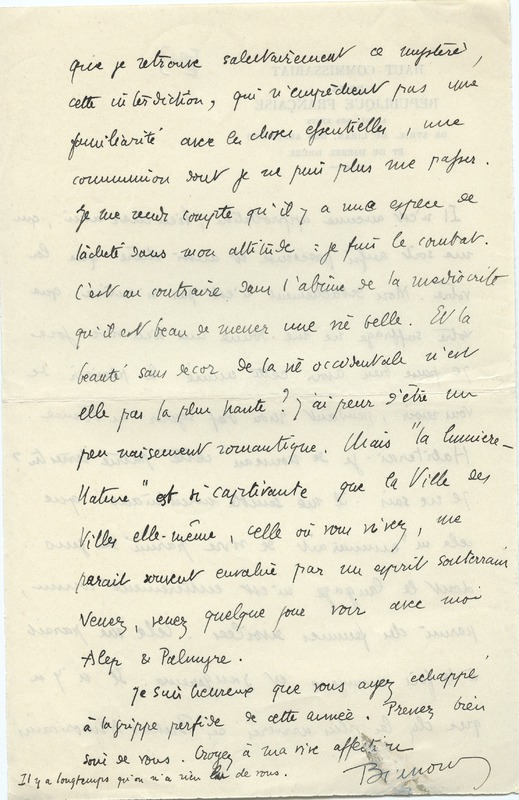 que je retrouve salutairement ce mystère,
cette interdiction, qui n'empêchent pas une
familiarité avec les choses essentielles, une
communion dont je ne puis plus me passer.
Je me rends compte qu'il y a une espèce de
lâcheté dans mon attitude : je fuis le combat.
C'est au contraire dans l'abîme de la médiocrité
qu'il est beau de mener une vie belle. Et la
beauté sans décor de la vie occidentale n'est
elle pas la plus haute ? J'ai peur d'être un
peu niaisement romantique. Mais "la lumière-
Nature" est si captivante que la Ville des
Villes elle-même, celle où vous vivez, me
paraît souvent envahie par un esprit souterrain
Venez, venez quelque jour voir avec moi
Alep & Palmyre.
Je suis heureux que vous ayez échappé
à la grippe perfide de cette année. Prenez bien
soin de vous. Croyez à ma vive affection
Il y a longtemps qu'on n'a rien lu de vous.